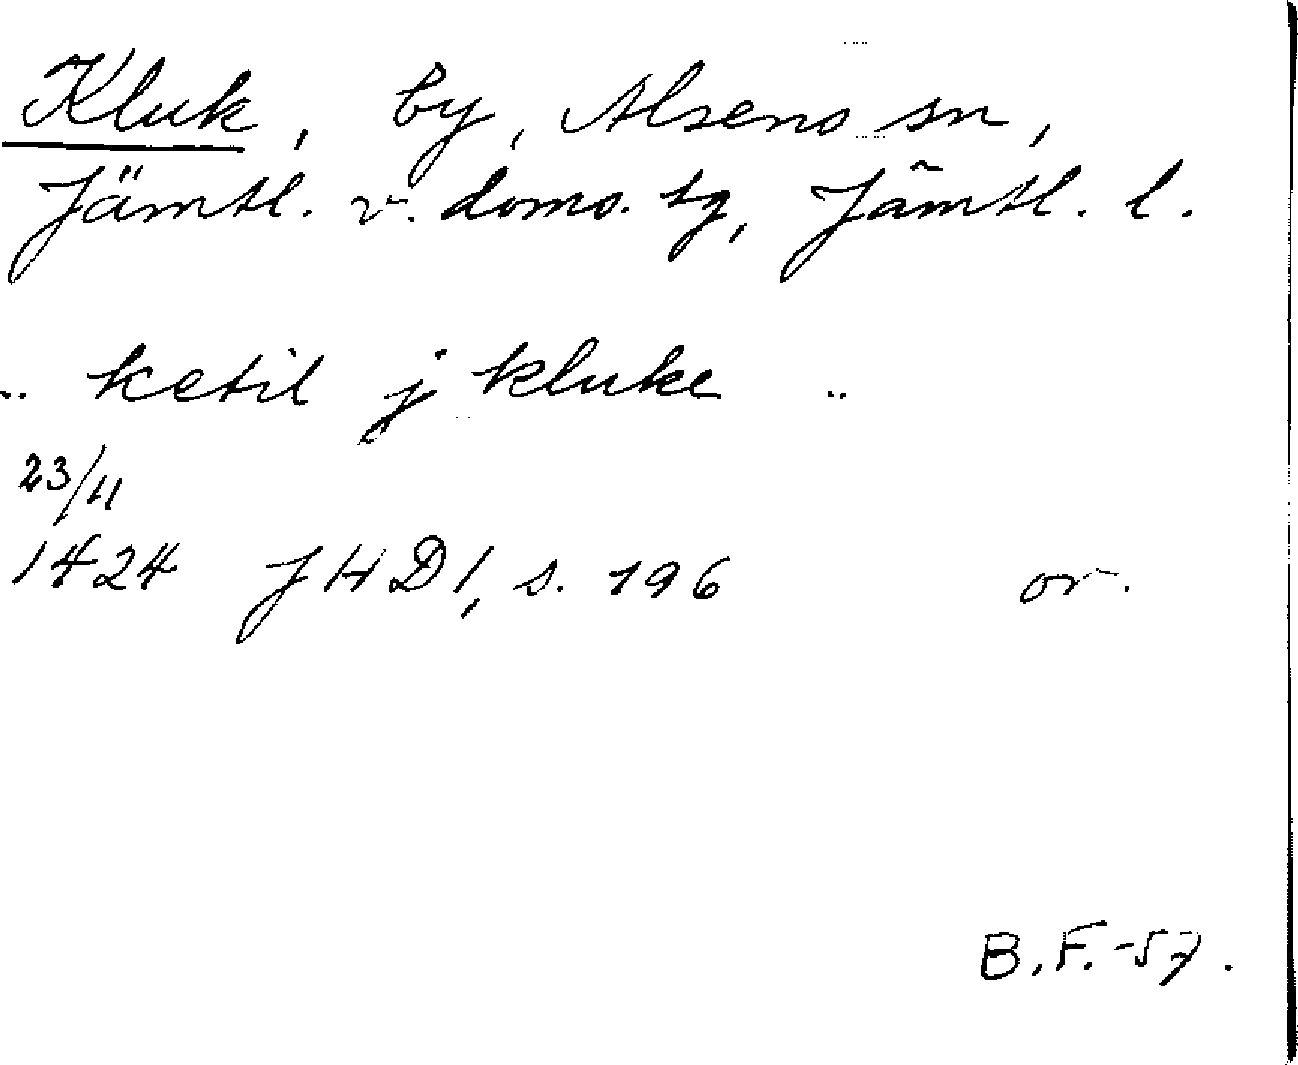 Kluk, by, Alsens sn,
Jämtl. v. doms. tg, Jämtl. l.
.. ketil j kluke ..
23/11
1424 JHD1, s. 196 or.
B.F.-57.